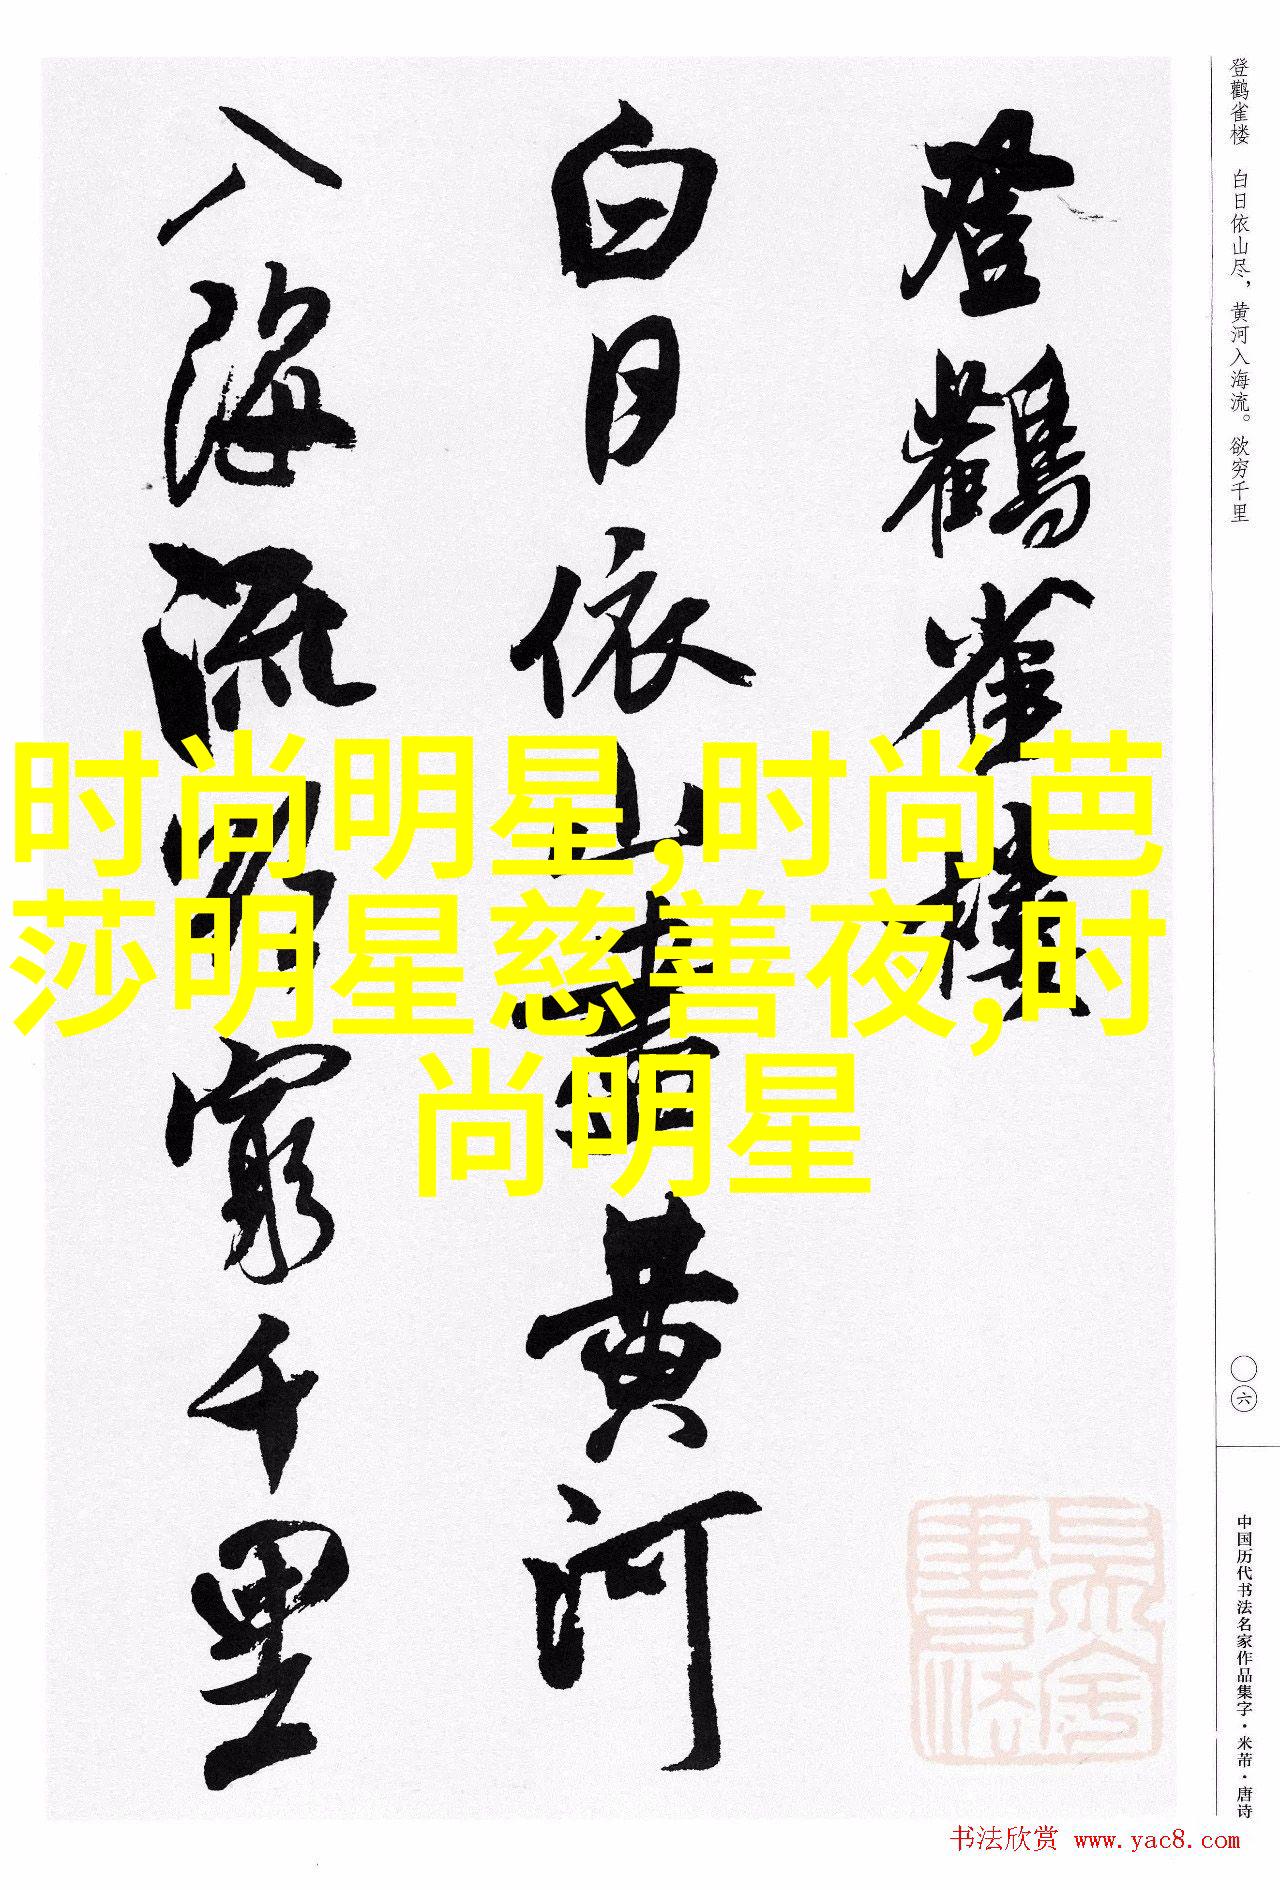 登鹳雀楼 白日依山尽，黄河入海流。欲穷千里
登鸛雀樓
白日依山盡黃河
入海流欲窮千里
时尚明星,时尚芭
莎明星慈善夜,时
尚明星
〇六
中国历代书法名家作品集字·米芾·唐诗
书法欣赏 www.yac8.com